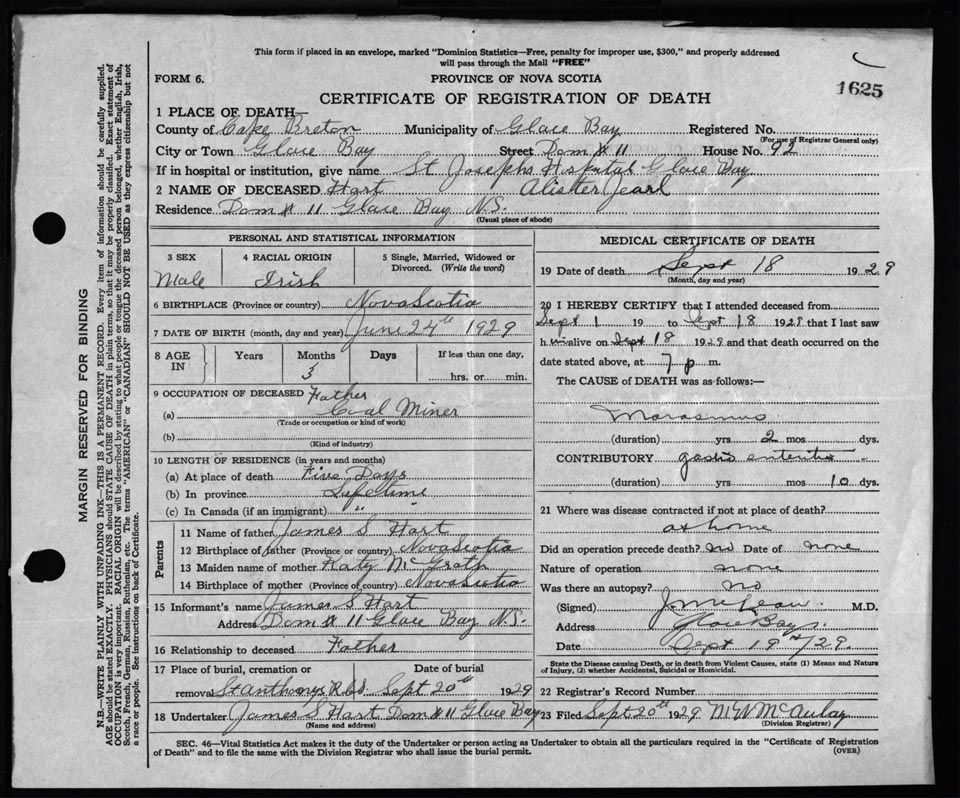 This form if placed in an envelope, marked "Dominion Statistics—Free, penalty for improper use, $300," and properly addressed
will pass through the Mail "FREE"
FORM 6. PROVINCE OF NOVA SCOTIA
1625
CERTIFICATE OF REGISTRATION OF DEATH
1 PLACE OF DEATH—
County of Cape Breton Municipality of Glace Bay Registered No.
(For use of Registrar General only)
City or Town Glace Bay Street Dom # 11 House No. 92
If in hospital or institution, give name St Josephs Hospital Glace Bay
2 NAME OF DECEASED Hart Alister Jearl
Residence Dom # 11 Glace Bay N.S.
(Usual place of abode)
PERSONAL AND STATISTICAL INFORMATION
3 SEX 4 RACIAL ORIGIN 5 Single, Married, Widowed or
Divorced. (Write the word)
Male Irish
6 BIRTHPLACE (Province or country) Nova Scotia
7 DATE OF BIRTH (month, day and year) June 24th 1929
8 AGE IN Years Months Days If less than one day,
3 hrs. or min.
9 OCCUPATION OF DECEASED Father
(a) Coal Miner
(Trade or occupation or kind of work)
(b)
(Kind of industry)
10 LENGTH OF RESIDENCE (in years and months)
(a) At place of death Five Days
(b) In province Lifetime
(c) In Canada (if an immigrant) " "
Parents
11 Name of father James S Hart
12 Birthplace of father (Province or country) Nova Scotia
13 Maiden name of mother Katy McGrath
14 Birthplace of mother (Province or country) Nova Scotia
15 Informant's name James S Hart
Address Dom # 11 Glace Bay N.S.
16 Relationship to deceased Father
17 Place of burial, cremation or Date of burial
removal St anthonys R.bd. Sept 20th 1929
18 Undertaker James S Hart Dom # 11 Glace Bay
(Name and address)
MEDICAL CERTIFICATE OF DEATH
19 Date of death Sept 18 1929
(Month, day and year)
20 I HEREBY CERTIFY that I attended deceased from
Sept 1 19 to Sept 18 1929 that I last saw
him alive on Sept 18 1929 and that death occurred on the
date stated above, at 7 p m.
The CAUSE of DEATH was as follows:—
Marasmus
(duration) yrs 2 mos dys.
CONTRIBUTORY gastro enteritis
(duration) yrs mos 10 dys.
21 Where was disease contracted if not at place of death?
at home
Did an operation precede death? No Date of none
Nature of operation none
Was there an autopsy? No
(Signed) J McLean M.D.
Address Glace Bay
Date Sept 19th/29.
State the Disease causing Death, or in death from Violent Causes, state (1) Means and Nature
of Injury, (2) whether Accidental, Suicidal or Homicidal.
22 Registrar's Record Number
23 Filed Sept 20th 1929 M W McAulay
(Division Registrar)
SEC. 46—Vital Statistics Act makes it the duty of the Undertaker or person acting as Undertaker to obtain all the particulars required in the "Certificate of Registration
of Death" and to file the same with the Division Registrar who shall issue the burial permit.
(OVER)
MARGIN RESERVED FOR BINDING
N.B.—WRITE PLAINLY WITH UNFADING INK—THIS IS A PERMANENT RECORD. Every item of information should be carefully supplied.
AGE should be stated EXACTLY. PHYSICIANS should STATE CAUSE OF DEATH in plain terms, so that it may be properly classified. Exact statement of
OCCUPATION is very important. RACIAL ORIGIN will be described by stating to what people or tongue the deceased person belonged, whether English, Irish,
Scotch, French, German, Russian, Ruthenian, etc. The terms "AMERICAN" or "CANADIAN" SHOULD NOT BE USED as they express citizenship but not
a race or people. See instructions on back of Certificate.